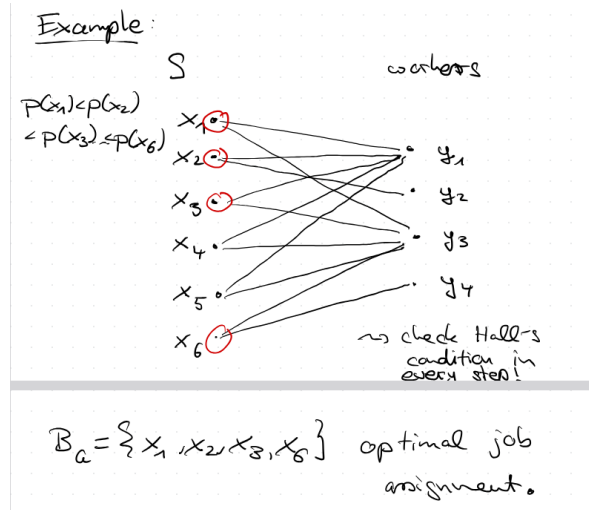 Example:
S workers
p(x₁)<p(x₂)
<p(x₃)≤p(x₆)
x₁
x₂
x₃
x₄
x₅
x₆
y₁
y₂
y₃
y₄
⇝ check Hall's
condition in
every step!
B_G = {x₁, x₂, x₃, x₆} optimal job
assignment.